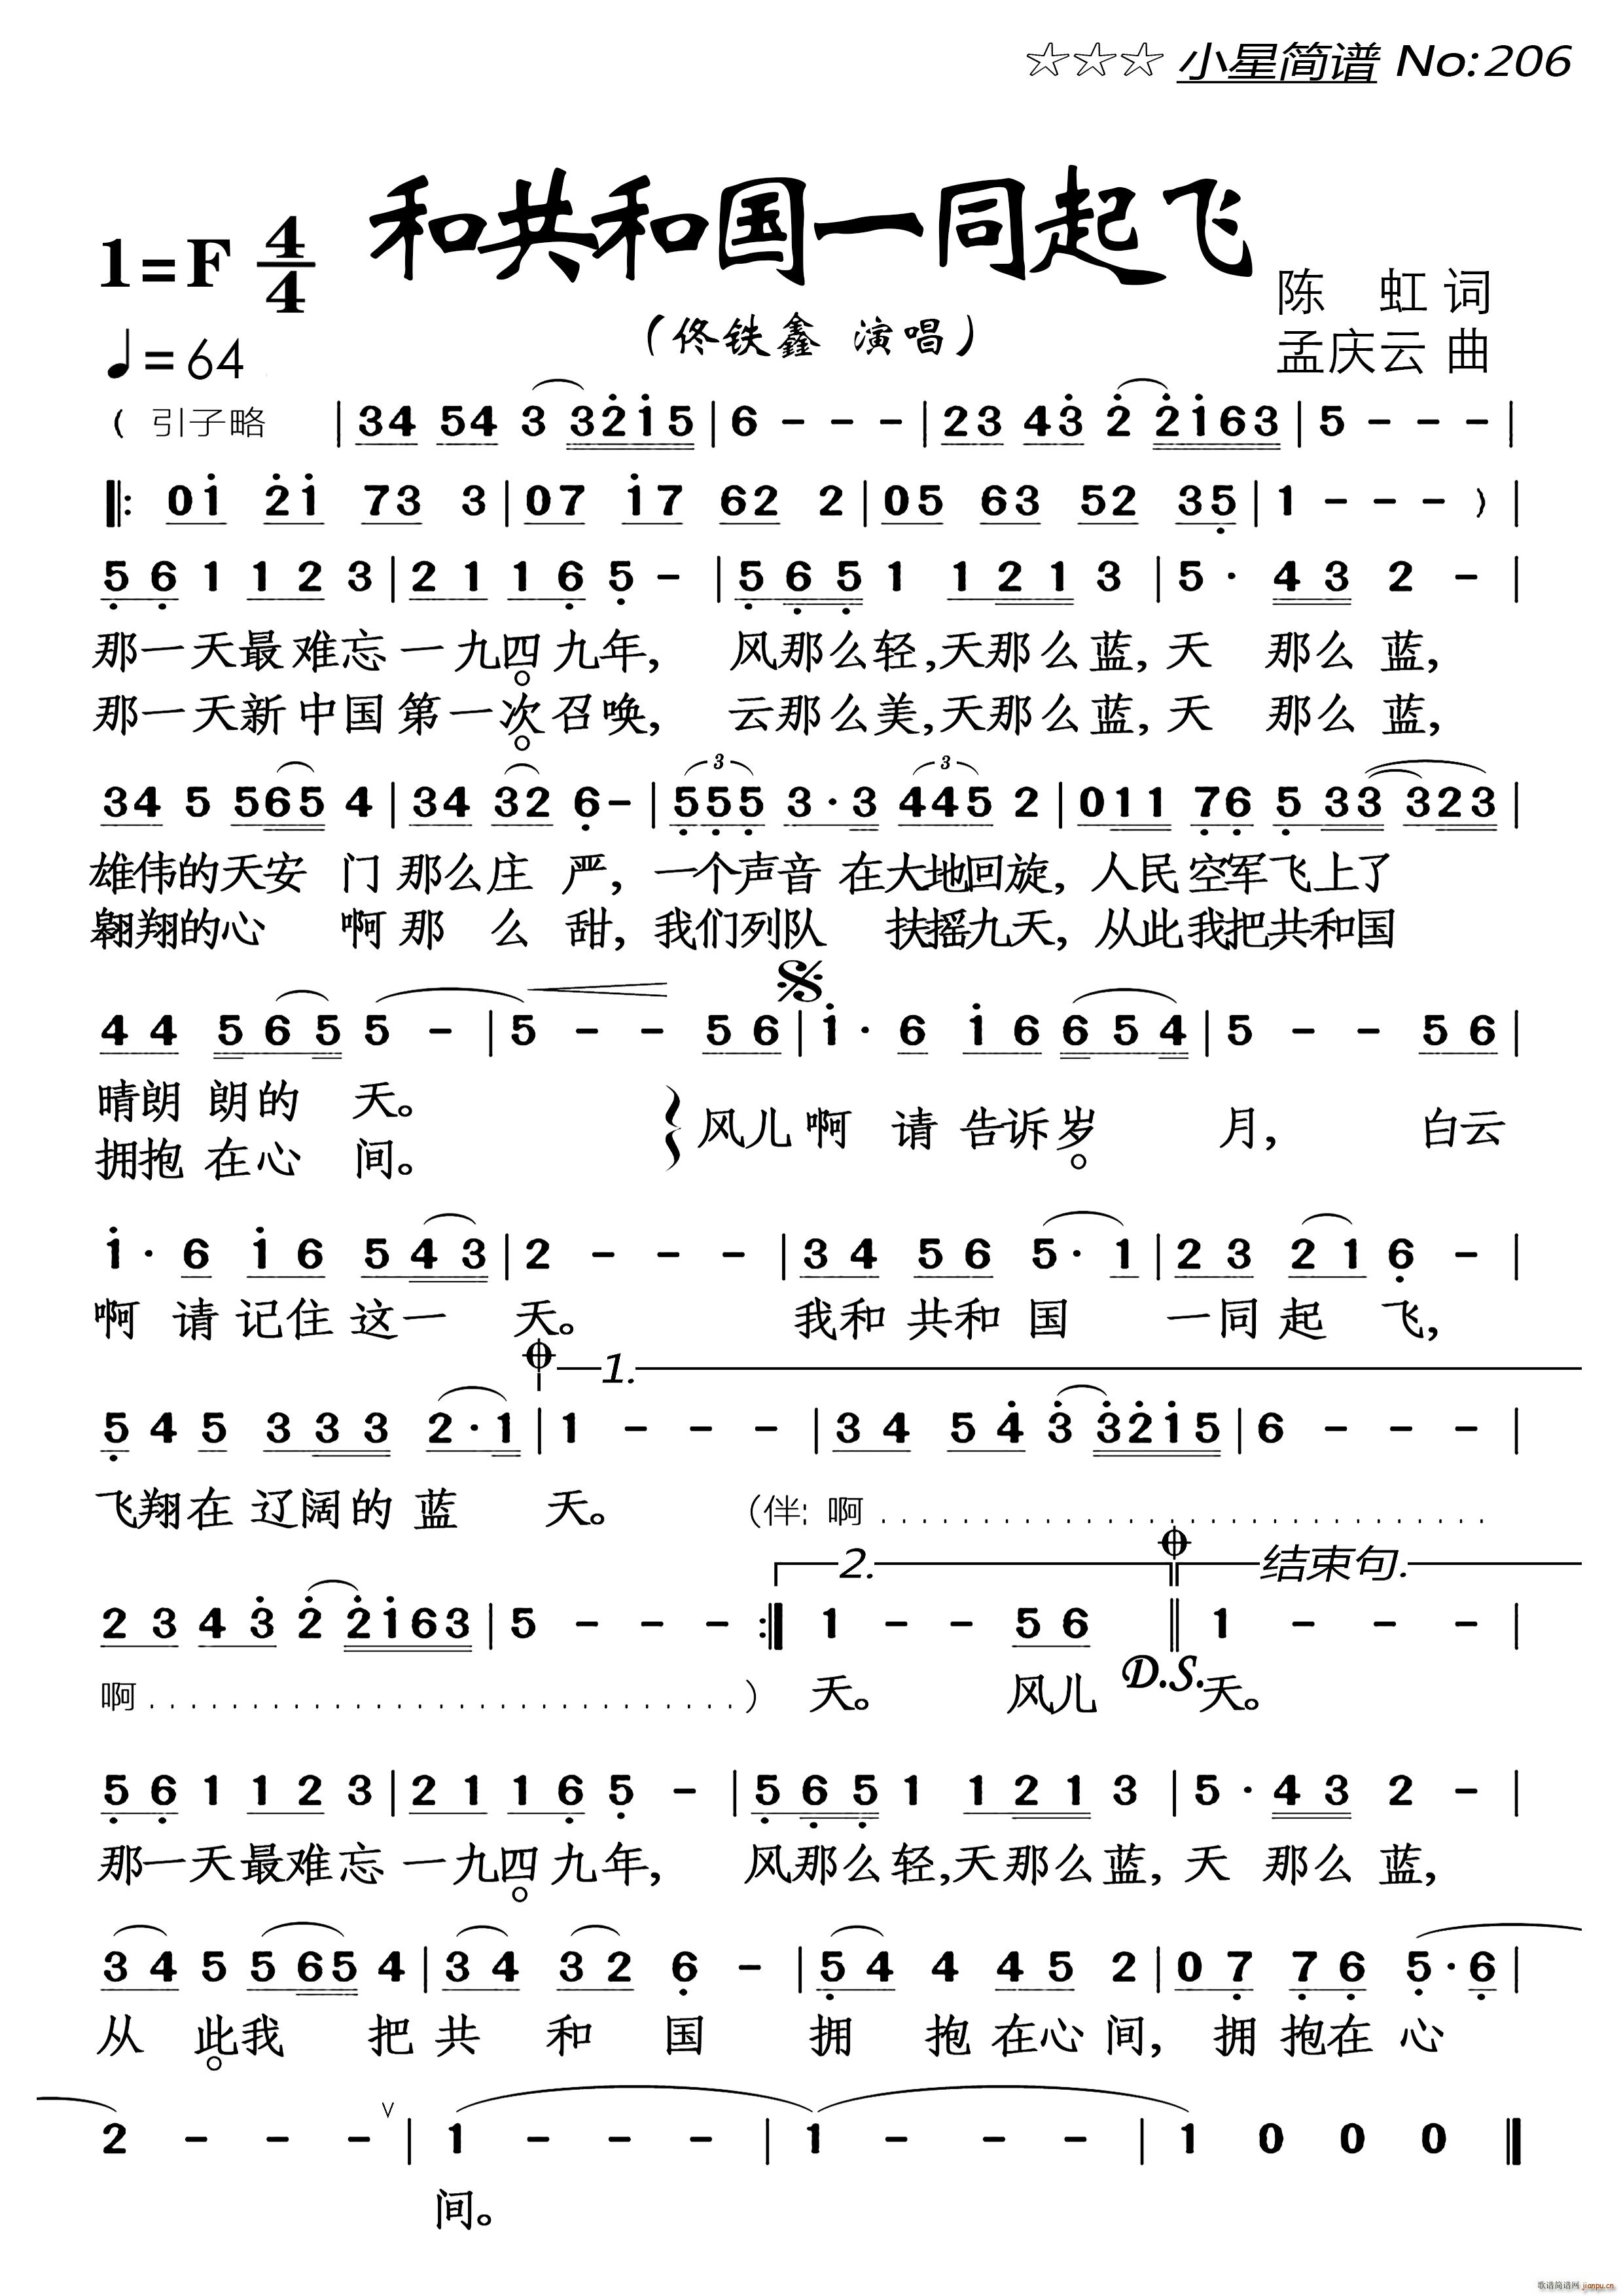 ☆☆☆ 小星简谱 No:206
和共和国一同起飞
1=F 4/4
陈 虹 词
(佟铁鑫 演唱)
孟庆云 曲
♩=64
( 引子略 | 34 54 3 32̇1̇5 | 6 - - - | 23 43̇ 2̇ 2̇1̇63 | 5 - - - |
‖: 01̇ 2̇1̇ 73 3 | 07 1̇7 62 2 | 05 63 52 35̣ | 1 - - - ) |
5̣ 6̣ 1 1 2 3 | 2 1 1 6̣ 5̣ - | 5̣ 6̣ 5̣ 1 1 2 1 3 | 5 · 4 3 2 - |
那一天最难忘一九四九年, 风那么轻,天那么蓝,天 那么 蓝,
那一天新中国第一次召唤, 云那么美,天那么蓝,天 那么 蓝,
34 5 565 4 | 34 32 6̣ - | 5̣5̣5̣ 3·3 445 2 | 011 7̣6̣ 5̣ 33 323 |
3 3
雄伟的天安 门 那么庄 严, 一个声音 在大地回旋, 人民 空军飞上了
翱翔的心 啊 那 么 甜, 我们列队 扶摇九天, 从此我把共和国
4 4 5 6 5 5 - | 5 - - 5 6 | 1̇ · 6 1̇ 6 6 5 4 | 5 - - 5 6 |
晴朗 朗的 天。
风儿 啊 请 告诉岁 月, 白云
拥抱 在心 间。
1̇ · 6 1̇ 6 5 4 3 | 2 - - - | 3 4 5 6 5 · 1 | 2 3 2 1 6̣ - |
啊 请 记住 这一 天。 我和 共和 国 一同 起 飞,
1.
5̣ 4 5 3 3 3 2 · 1 | 1 - - - | 3 4 5 4̇ 3̇ 3̇2̇1̇5 | 6 - - - |
飞翔在 辽阔的 蓝 天。 (伴: 啊 ..............................
2. 结束句.
2 3 4 3̇ 2̇ 2̇1̇63 | 5 - - - :‖ 1 - - 5 6 ‖ 1 - - - |
啊 ..............................) 天。 风儿 D.S. 天。
5̣ 6̣ 1 1 2 3 | 2 1 1 6̣ 5̣ - | 5̣ 6̣ 5̣ 1 1 2 1 3 | 5 · 4 3 2 - |
那一天最难忘 一九四九年, 风那么轻,天那么蓝,天 那么 蓝,
3 4 5 5 6 5 4 | 3 4 3 2 6̣ - | 5̣ 4 4 4 5 2 | 0 7̣ 7̣ 6̣ 5̣ · 6̣ |
从 此我 把 共 和 国 拥 抱 在心 间, 拥 抱在 心
2 - - - ∨ | 1 - - - | 1 - - - | 1 0 0 0 ‖
间。
歌谱简谱网 jianpu.cn